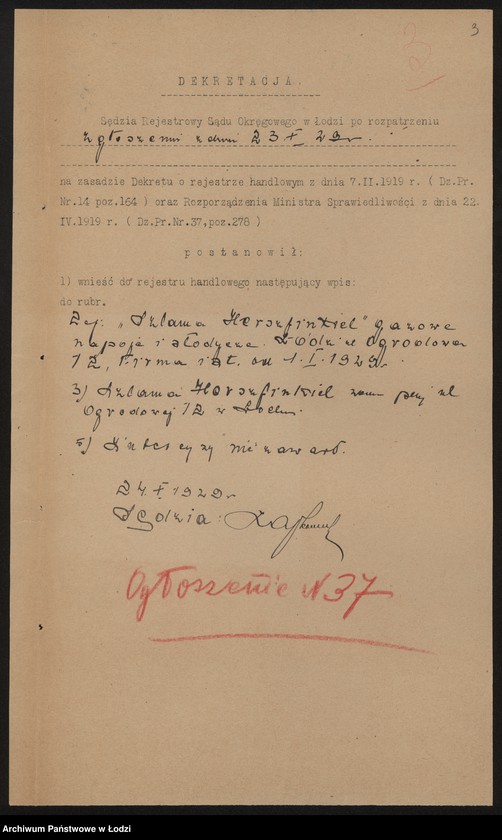 3
3
DEKRETACJA.
Sędzia Rejestrowy Sądu Okręgowego w Łodzi po rozpatrzeniu
zgłoszenia z dnia 23 X 29 r.
na zasadzie Dekretu o rejestrze handlowym z dnia 7.II.1919 r. ( Dz.Pr.
Nr.14 poz.164 ) oraz Rozporządzenia Ministra Sprawiedliwości z dnia 22.
IV.1919 r. ( Dz.Pr.Nr.37,poz.278 )
postanowił:
1) wnieść do rejestru handlowego następujący wpis:
do rubr.
"Szlama Herszfinkiel" gazowe
napoje i słodycze. Łódź, ul. Ogrodowa
12, Firma ist. od 1.I.1929 r.
3) Szlama Herszfinkiel zam przy ul
Ogrodowej 12 w Łodzi.
5) Intercyzy nie zawarł.
24.X.1929 r
Sędzia:
Ogłoszenie N 37
Archiwum Państwowe w Łodzi